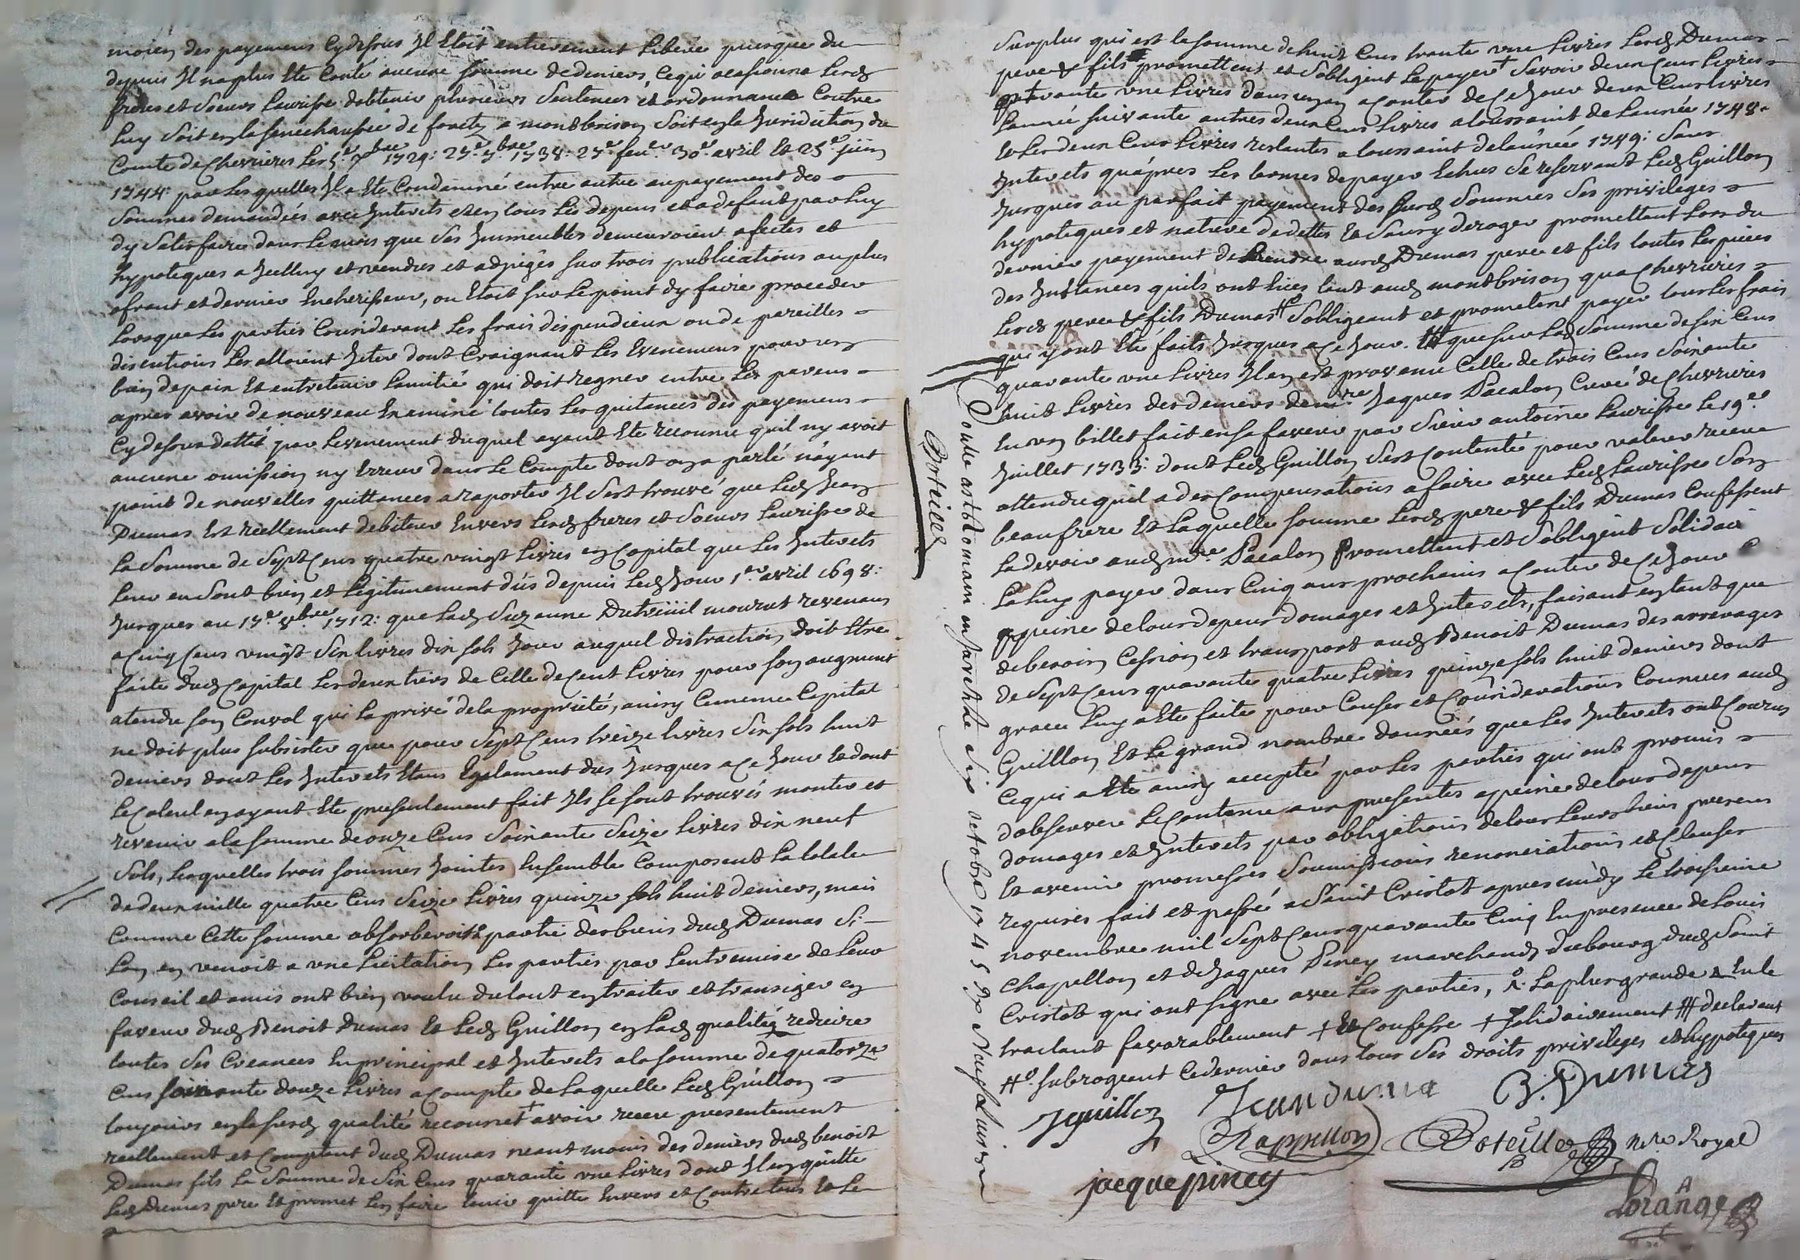 moien des payemens cy dessus Il Etoit entierement Liberé puisque du
depuis Il na plus Ete Conté aucune somme de deniers, Ce qui ocasionna Lesd
freres et Soeurs Laurisse dobtenir plusieurs Sentences et ordonnances Contre
Luy Soit en la senechaussée de forest a montbrison Soit en la Jurisdiction du
Comte de Chevrieres Les 5e 7bre 1729: 27e 7bre 1738: 27e feuer 30e avril Et 25e Juin
1744: par Lesquelles Il a Ete Condamné entre autre au payement des
Sommes demandées avec Interets et en tous Les depens et a defaut par Luy
dy Satisfaire dans Le mois que Ses Immeubles demeuroient afectes et
hypoteques a Icelluy et vendues et adjugés sur trois publications au plus
ofrant et dernier Encherisseur, on Etoit sur Le point dy faire proceder
Lorsque Les parties Considerant Les frais dispendieux ou de pareilles
discutions Les alloient Jeter dont Craignant Les Evenemens pour un
bien de paix Et entretenir Lamitié qui doit regner entre Les parens
apres avoir de nouveau Examiné toutes Les quitances des payemens
Cy dessus dattés par Levenement duquel ayant Ete reconnu quil ny avoit
aucune omission ny Erreur dans Le Compte dont on a parlé nayant
point de nouvelles quittances a raporter Il Sest trouvé que Led Jean
Dumas Est reellement debiteur Envers Lesd freres et Soeurs Laurisse de
La Somme de Sept Cens quatre vingt Livres en Capital que Les Interets
Leur en Sont bien et Legitimement dûs depuis Led Jour 1er avril 1698:
Jusques au 17e 8bre 1712: que Lad Suzanne Dutreüil mourut revenans
a Cinq Cens vingt Six livres dix sols Jour auquel distraction doit Etre
faite dud Capital Les deux tiers de Celle de Cent Livres pour son augment
atendu son Convol qui La privé de la propriété, ainsy Ce meme Capital
ne doit plus subsister que pour Sept Cens treize livres Six sols huit
deniers dont Les Interets Etans Egalement dus Jusques a Ce Jour Et dont
Le Calcul en ayant Ete presentement fait Ils se sont trouvés monter et
revenir a la somme de onze Cens Soixante Seize livres dix neuf
Sols, Lesquelles trois sommes Jointes Ensemble Composent La totale
de deux mille quatre Cens Seize Livres quinze sols huit deniers, mais
Comme Cette somme absorberoit partie des biens dud Dumas Si
Lon en venoit a une Licitation Les parties par Lentremise de Leur
Conseil et amis ont bien voulu du tout en traiter et transiger en
faveur dud Benoit Dumas Et Led Guillon en Lad qualité reduire
toutes Ses Creances En principal et Interets a la somme de quatorze
Cens soixante douze Livres a Compte de Laquelle Led Guillon
toujours en la susd qualité reconnet + avoir receu presentement
reellement et Comptant dud Dumas neant moins des deniers dud benoit
Dumas fils La Somme de Six Cens quarante une Livres dont Il en quitte
Led Dumas pere Et promet Len faire tenir quitte Envers et Contre tous Et Le
Surplus qui est La somme de huit Cens trante une Livres Lesd Dumas
pere & fils promettent et Sobligent La payer + Savoir deux Cens Livres
trante une Livres dans un an a Conter de Ce Jour deux Cens livres
Lannée suivante autres deux Cens Livres a toussaint de Lannée 1748
Et Les deux Cens Livres restantes a toussaint de Lannée 1749: Sans
Interets quapres Les termes de payer Echus Se reservant Led Guillon
Jusques au parfait payement des susd Sommes Ses privileges
hypoteques et nature de dettes Et Sans y deroger promettant Lors du
dernier payement de Rendre ausd Dumas pere et fils toutes Les pieces
des Instances quils ont Eües tant aud montbrison qua Chevrieres
Lesd pere & fils Dumas Sobligeant et promettent payer tous Les frais
qui y ont Ete faits Jusques a Ce Jour. # que sur Lad Somme de Six Cens
quarante une Livres Il en est provenu Celle de trois Cens Soixante
huit Livres des deniers de mre Jaques Pacalon Curé de Chevrieres
En un billet fait en sa faveur par Sieur antoine Laurisse Le 19e
Juillet 1733: dont Led Guillon Sest Contenté pour valeur receue
attendu quil a des Compensations a faire avec Led Laurisse Son
beau frere Et Laquelle somme Lesd pere & fils Dumas Confessent
La devoir aud mre Pacalon Promettent et Sobligent Solidai
La Luy payer dans Cinq ans prochains a Conter de Ce Jour
a peine de tous depens domages et Interets, faisant en tant que
de besoin Cession et transport aud Benoit Dumas des arrerages
de Sept Cens quarante quatre Livres quinze sols huit deniers dont
grace Luy a Ete faite pour Causes et Considerations Connues aud
Guillon Et Le grand nombre dannées que Les Interets ont Courus
Ce qui a Ete ainsy accepté par Les parties qui ont promis
dobserver Le Contenu aux presentes a peine de tous depens
domages et Interets par obligations de tous Leurs biens presens
Et avenir promesses Soumissions renonciations et Clauses
requises fait et passé a Saint Cristot apres midy Le troisieme
novembre mil Sept Cens quarante Cinq En presence de Louis
Chapellon et de Jaques Piney marchands du bourg dud Saint
Cristot qui ont signé avec Les parties, La plus grande & En le
tractant favorablement + Et Confesse + Solidairement # declarant
# subrogeant Ce dernier dans tous Ses droits privileges et hypoteques
Jguillon Jean dumas B. Dumas
Chappellon Boteille nre Royal
jacque piney
Boteille